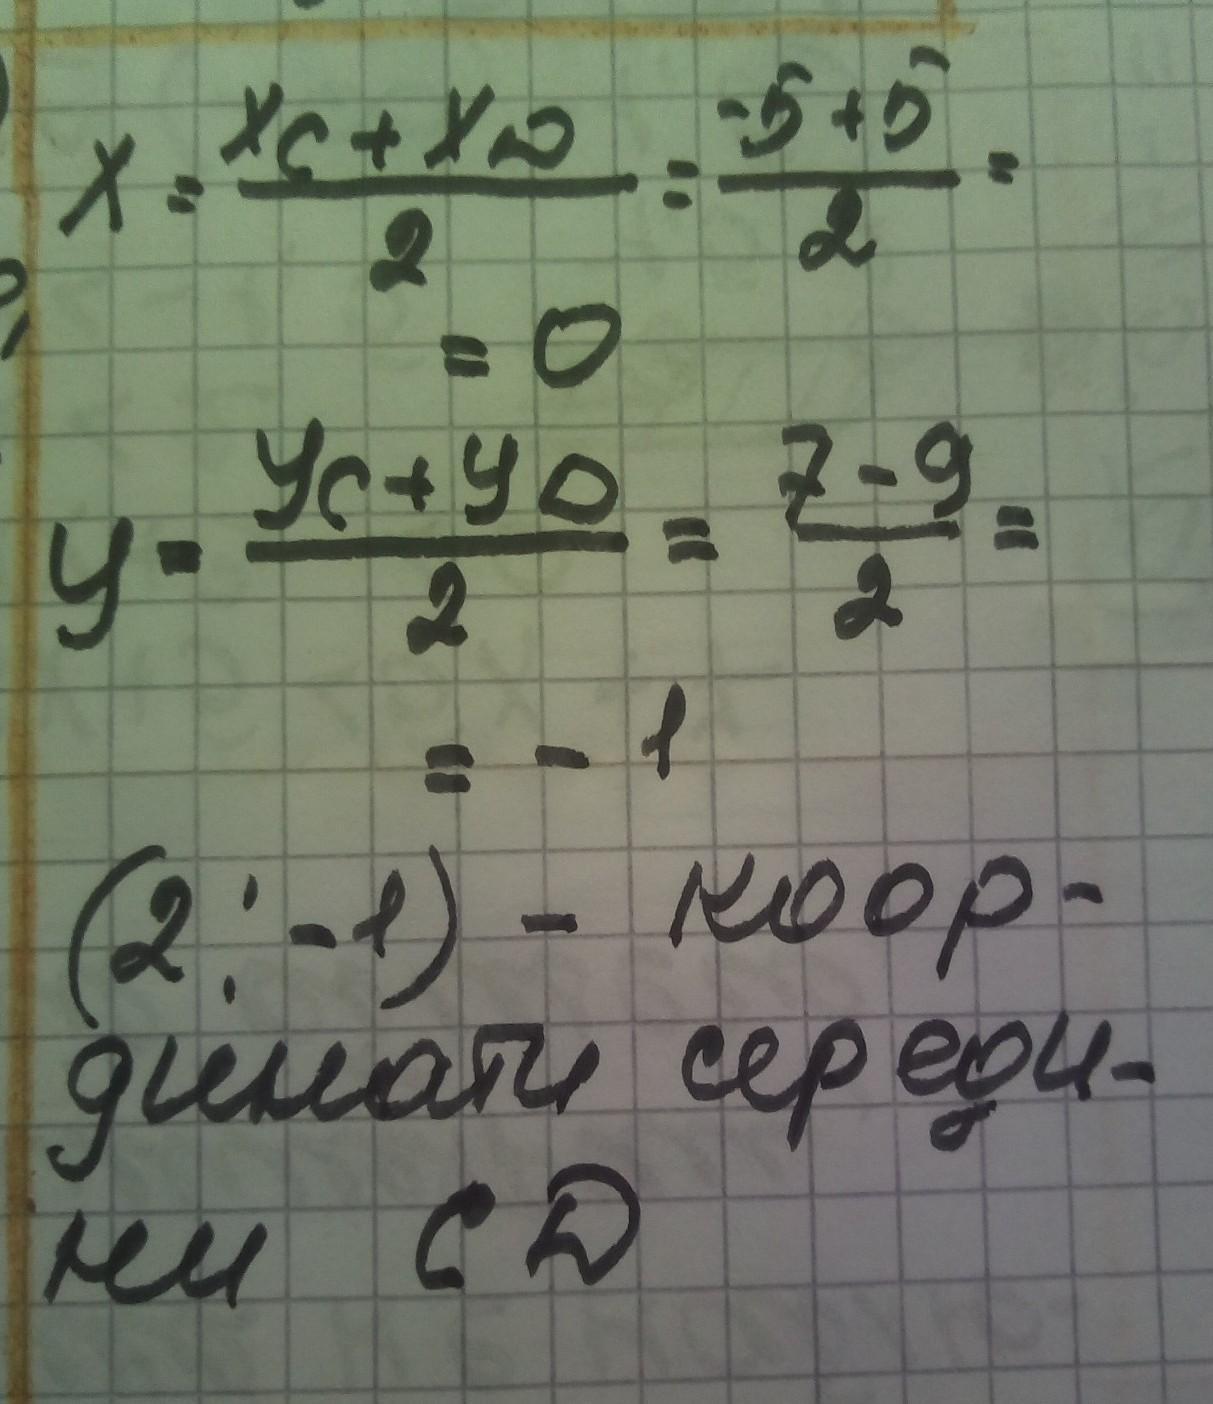 x = (xc + xD)/2 = (-5 + 5)/2 =
= 0
y = (yc + yD)/2 = (7 - 9)/2 =
= - 1
(2 ; -1) - коор-
динати середи-
ни CD